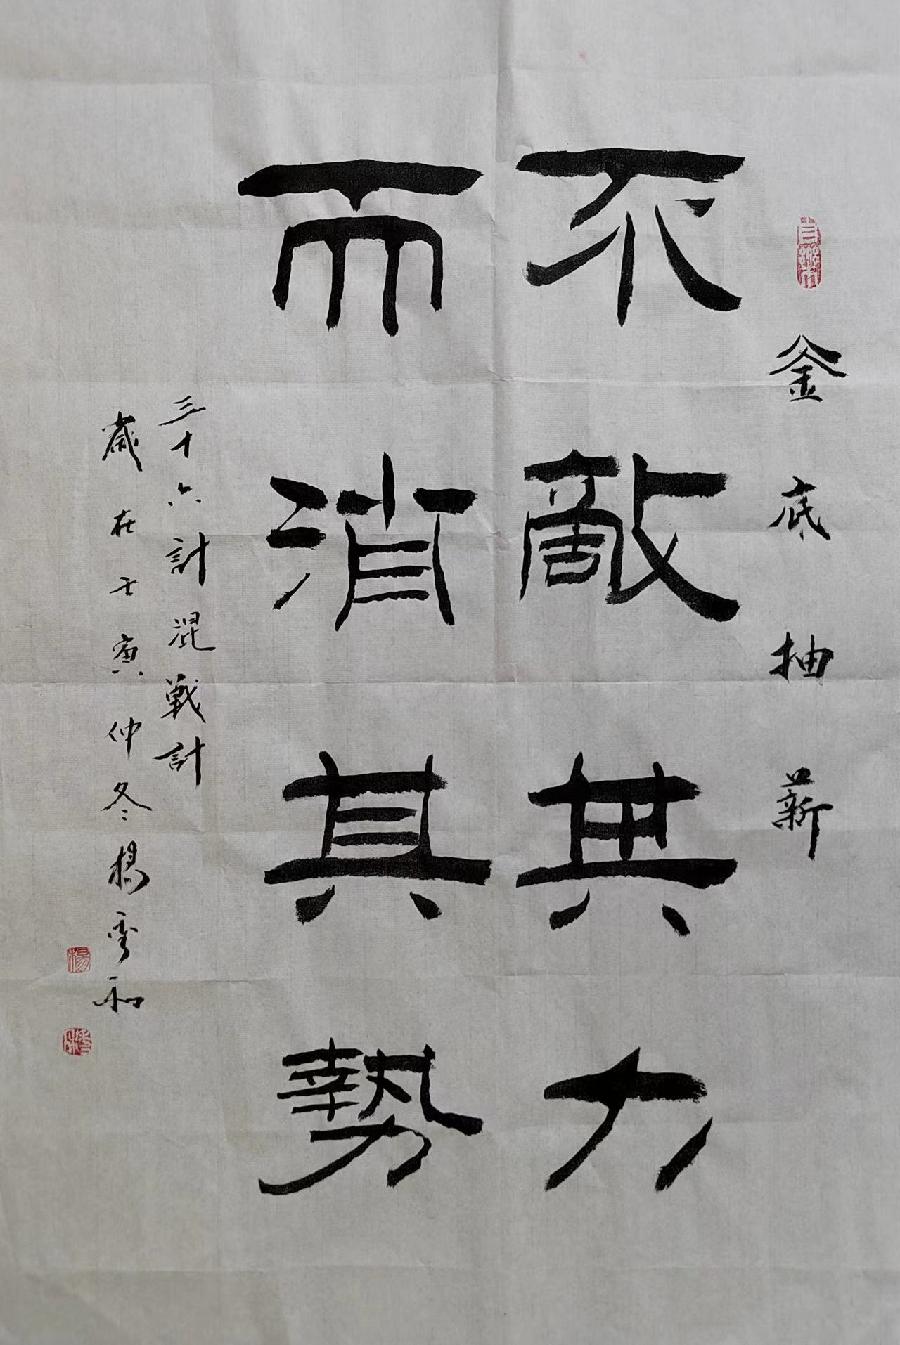 釜底抽薪
不敵其力
而消其勢
三十六計混戰計
歲在壬寅仲冬楊雪和